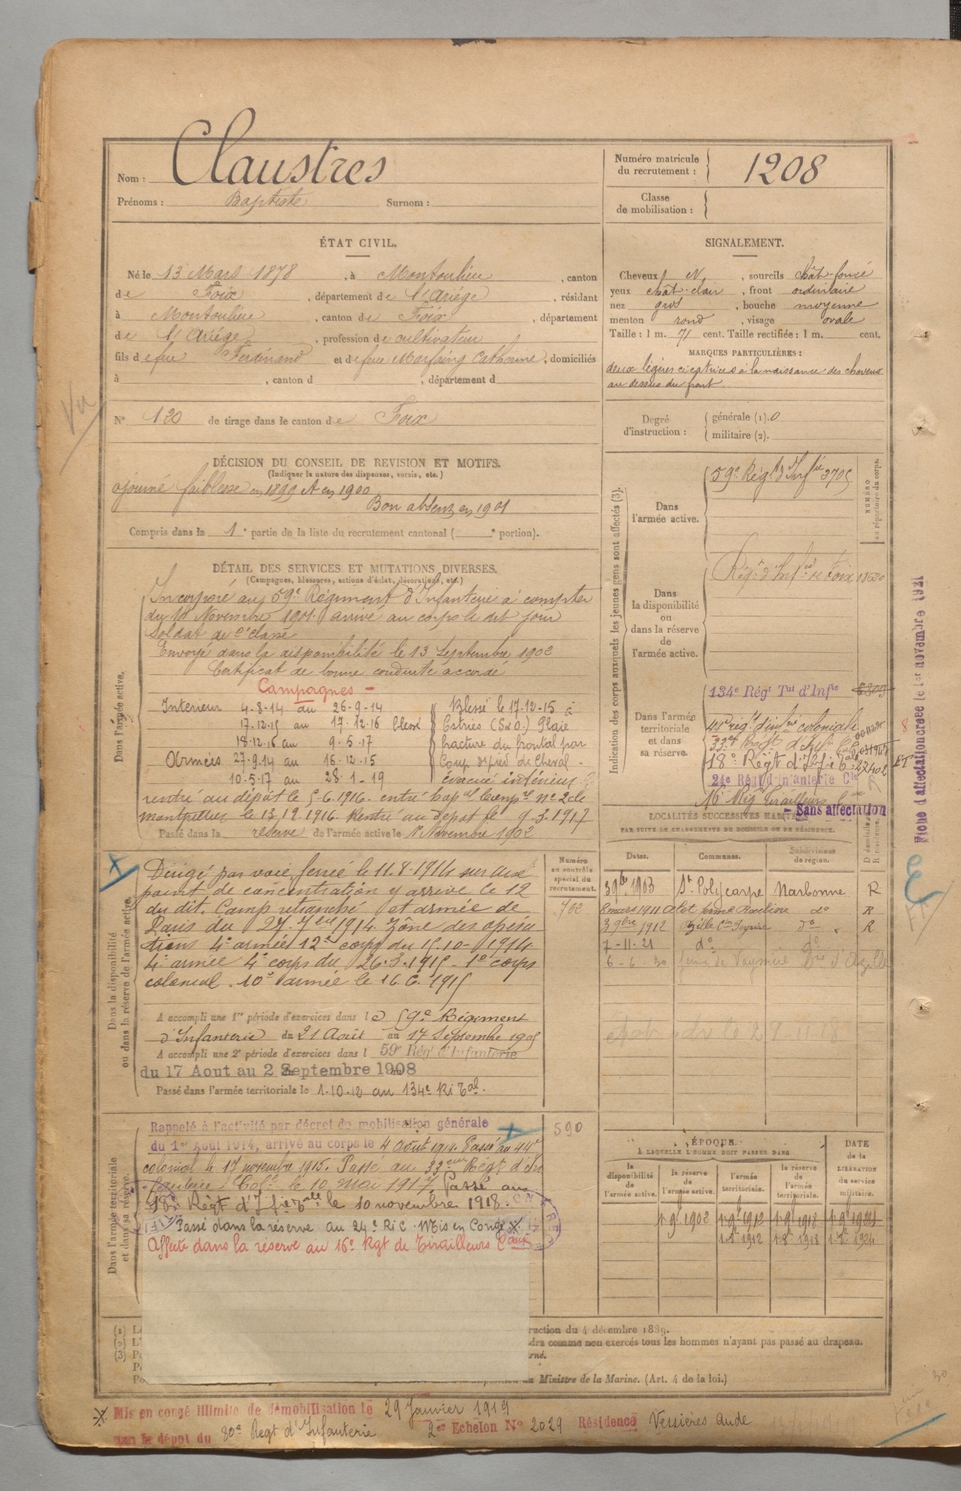 Nom : Claustres
Prénoms : Baptiste Surnom :
Numéro matricule
du recrutement : 1208
Classe
de mobilisation :
ÉTAT CIVIL.
Né le 13 Mars 1878, à Montoulieu, canton
de Foix, département de l'Ariége, résidant
à Montoulieu, canton de Foix, département
de l'Ariége, profession de cultivateur
fils de feu Ferdinand et de feue Catherine, domiciliés
à , canton d , département d
N° 120 de tirage dans le canton de Foix
SIGNALEMENT.
Cheveux N, sourcils chât-foncé
yeux chât-clair, front ordinaire
nez gros, bouche moyenne
menton rond, visage ovale
Taille : 1 m. 71 cent. Taille rectifiée : 1 m. cent.
MARQUES PARTICULIÈRES :
deux légères cicatrices à la naissance des cheveux
au dessus du front.
Degré
d'instruction :
générale (1). 0
militaire (2).
DÉCISION DU CONSEIL DE REVISION ET MOTIFS.
(Indiquer la nature des dispenses, sursis, etc.)
ajourné faiblesse en 1899 et en 1900
Bon absent en 1901
Compris dans la 1e partie de la liste du recrutement cantonal ( e portion).
DÉTAIL DES SERVICES ET MUTATIONS DIVERSES.
(Campagnes, blessures, actions d'éclat, décorations, etc.)
Dans l'armée active.
Incorporé au 59e Régiment d'Infanterie à compter
du Novembre 1901 arrivé au corps le dit jour
Soldat de 2e classe
Envoyé dans la disponibilité le 13 Septembre 1902
Certificat de bonne conduite accordé
Campagnes -
Intérieur 4-8-14 au 26-9-14
17-12-15 au 17-12-16 blessé
18-12-16 au 9-5-17
Armées 27-9-14 au 16-12-15
10-5-17 au 28-1-19
Blessé le 17-12-15 à
Estrées Plaie
fracture du frontal par
Coup de pied de cheval -
évacué intérieur
rentré au dépôt le 5-6-1916. entré n° 2 de
Montpellier le 1916 Rentré au dépôt le 9-3-1917
Passé dans la réserve de l'armée active le 1 Novembre 1902
Indication des corps auxquels les jeunes gens sont affectés (3).
Dans
l'armée active.
59e Régt d'Infie 3705
NUMÉRO
au répertoire du corps.
Dans
la disponibilité
ou
dans la réserve
de
l'armée active.
Régt d'Infie de Foix
Dans l'armée
territoriale
et dans
sa réserve.
134e Régt Tal d'Infie
44e régt d'infie coloniale
18e Régt d'Ifie
24e Régt d'Infanterie Cle
16e Régt Tirailleurs
Sans affectation
Fiche d'affectation créée le 1er novembre 1921
Dans la disponibilité
ou dans la réserve de l'armée active.
Dirigé par voie ferrée le 11-8-1914 sur aux
point de concentration y arrivé le 12
du dit. Camp retranché et armée de
Paris du 27-7bre 1914 zône des opéra
tions 4e armée 12e corps du 15-10-1914
4e armée 4e corps du 26-3-1915 - 1er corps
colonial. 10e armée le 16-6-1915
A accompli une 1re période d'exercices dans le 59e Régiment
d'Infanterie du 21 Août au 17 Septembre 1905
A accompli une 2e période d'exercices dans l 59e Régt d'Infanterie
du 17 Aout au 2 Septembre 1908
Passé dans l'armée territoriale le 1-10-12 au 134e Ri Tal.
Numéro
au contrôle
spécial du
recrutement.
702
590
LOCALITÉS SUCCESSIVES HABITÉES
PAR SUITE DE CHANGEMENTS DE DOMICILE OU DE RÉSIDENCE.
Dates. Communes. Subdivisions
de région. D domicile. R résidence.
1903 St Polycarpe Narbonne R
8 mars 1911 do R
1912 do R
7-11-21 do do
6-6-30
Dans l'armée territoriale
et dans sa réserve.
Rappelé à l'activité par décret de mobilisation générale
du 1er Août 1914, arrivé au corps le 4 Août 1914. Passé au 44e
colonial le 17 novembre 1915. Passé au 33eme Régt d'In
fanterie Cole le 10 mai 1917. Passé au
18e Régt d'Ifie le 10 novembre 1918.
Passé dans la réserve au 24e Ric. Mis en Congé X
Affecté dans la réserve au 16e Rgt de Tirailleurs Caux
ÉPOQUE
À LAQUELLE L'HOMME DOIT PASSER DANS
la
disponibilité
de
l'armée active.
la réserve
de
l'armée active.
l'armée
territoriale.
la réserve
de
l'armée
territoriale.
DATE
de la
LIBÉRATION
du service
militaire.
1902 1912 1918
1912 1918
(1)
(2)
(3)
ruction du 4 décembre 1889.
comme non exercés tous les hommes n'ayant pas passé au drapeau.
Ministre de la Marine. (Art. 4 de la loi.)
Mis en congé illimité de démobilisation le 29 Janvier 1919
par le dépôt du 80e Régt d'Infanterie 2e Echelon N° 2029 Résidence Aude